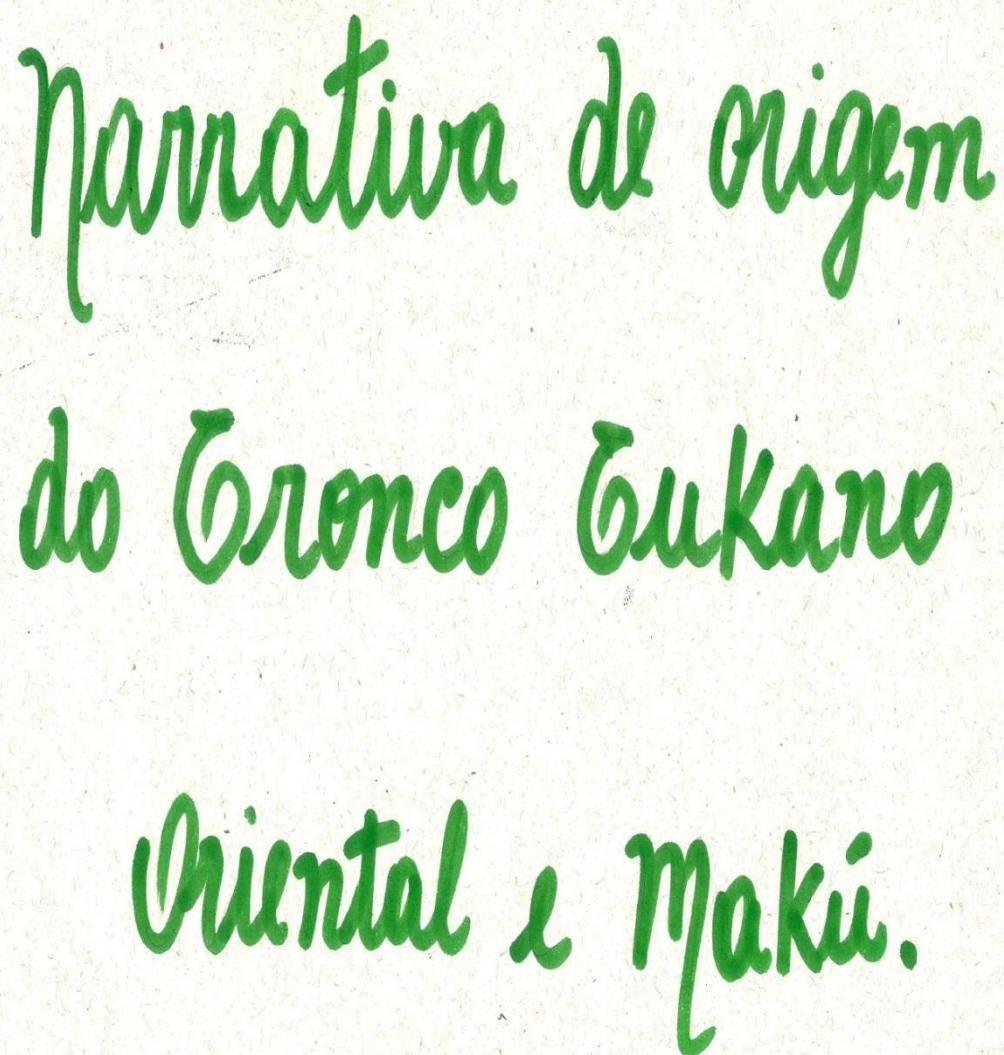 Narrativa de origem
do Tronco Tukano
Oriental e Makú.